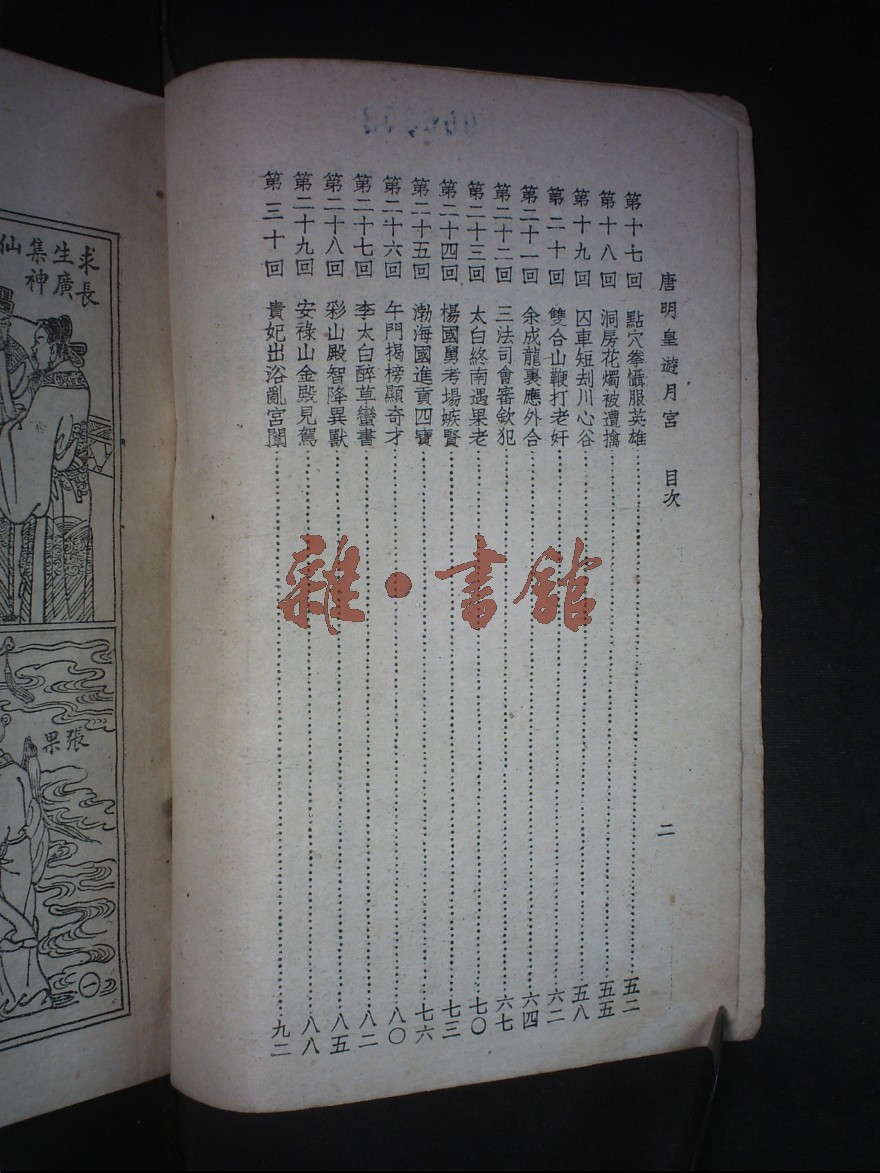 唐明皇遊月宮　目次　二
第十七回　點穴拳懾服英雄……五二
第十八回　洞房花燭被遭擒……五五
第十九回　囚車短刦川心谷……五八
第二十回　雙合山鞭打老奸……六二
第二十一回　余成龍裏應外合……六四
第二十二回　三法司會審欽犯……六七
第二十三回　太白終南遇果老……七〇
第二十四回　楊國舅考場嫉賢……七三
第二十五回　渤海國進貢四寶……七六
第二十六回　午門揭榜顯奇才……八〇
第二十七回　李太白醉草蠻書……八二
第二十八回　彩山殿智降異獸……八五
第二十九回　安祿山金殿見駕……八八
第三十回　貴妃出浴亂宮闈……九二
求長
生廣
集神
仙
張
果
一
雜·書館